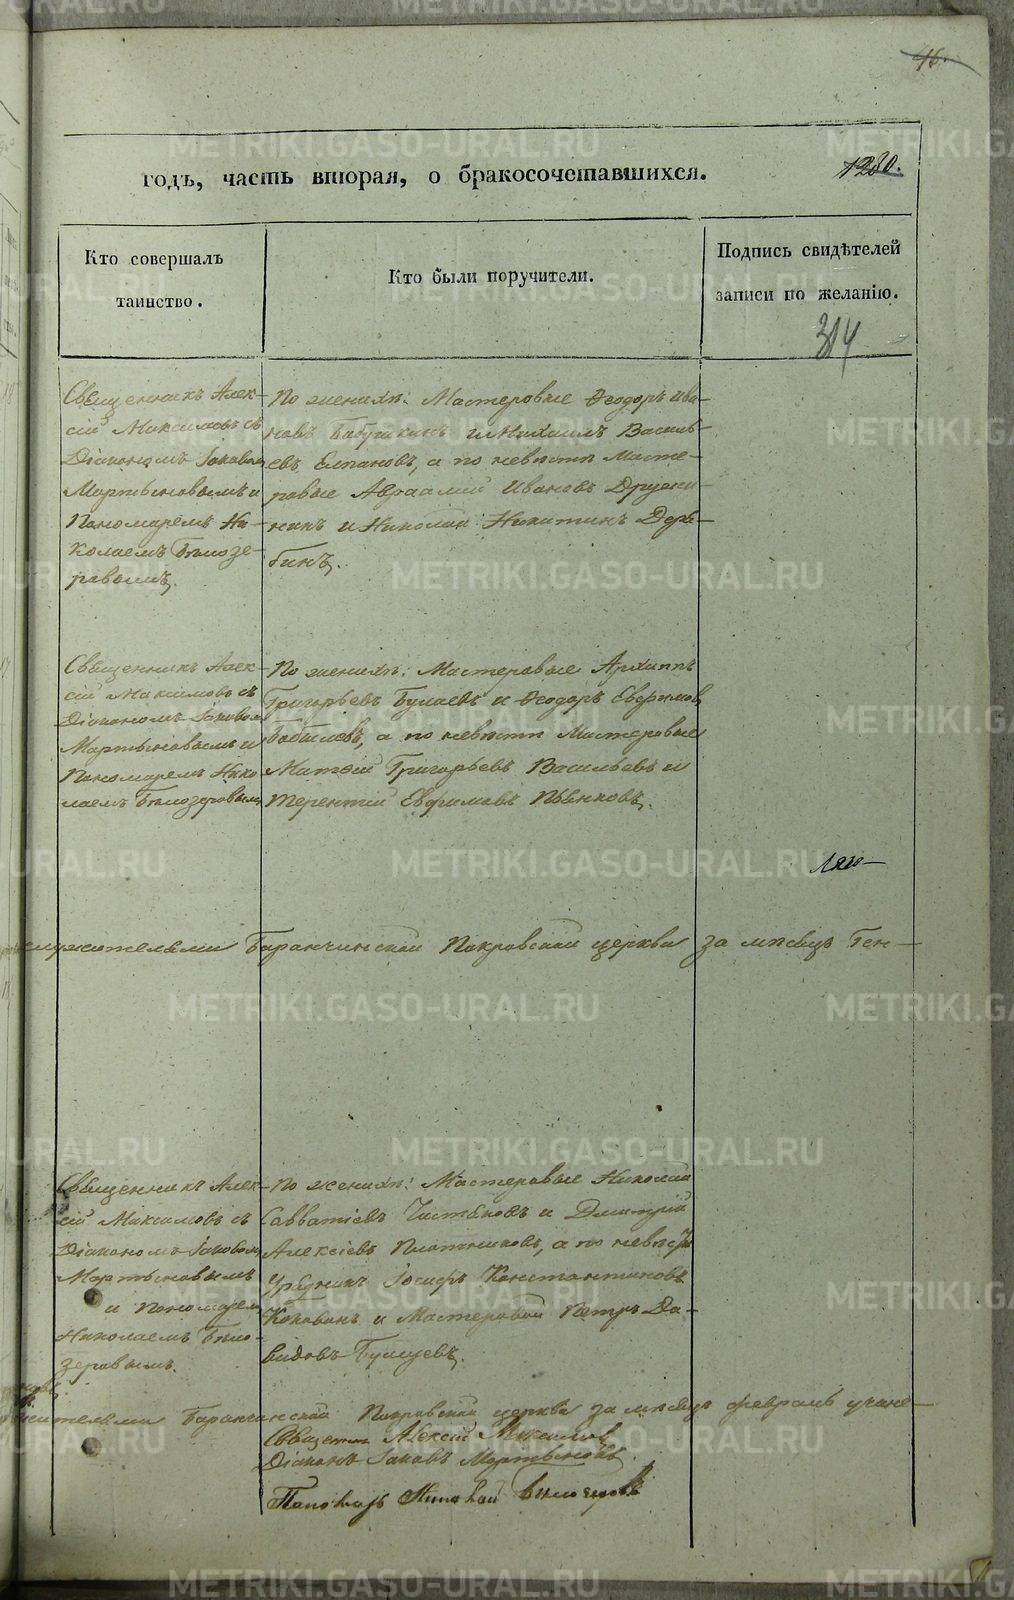 46.
годъ, часть вторая, о бракосочетавшихся.
1280.
Кто совершалъ
таинство.
Кто были поручители.
Подпись свидѣтелей
записи по желанію.
314
Священникъ Алек-
сій Максимовъ съ
Діакономъ Іаковом
Мартыновымъ и
Пономаремъ Ни-
колаемъ Бѣлозе-
ровымъ.
По женихѣ: Мастеровые Ѳеодоръ Ива-
новъ Бабушкинъ и Михаилъ Василь-
евъ Елпановъ, а по невѣстѣ Масте-
ровые Авраамій Ивановъ Дружи-
нинъ и Николай Никитинъ Деря-
бинъ.
Священникъ Алек-
сій Максимовъ съ
Діакономъ Іаковом
Мартыновымъ и
Пономаремъ Нико
лаемъ Бѣлозеровым
По женихѣ: Мастеровые Архипъ
Григорьевъ Булаевъ и Ѳеодоръ Евфимов
а по невѣстѣ Мастеровые
Матѳей Григорьевъ Васильевъ и
Терентій Евфимовъ Пьянковъ.
служителями Баранчинской Покровской церкви за мѣсяцъ Ген-
Священникъ Алек-
сій Максимовъ съ
Діакономъ Іаковом
Мартыновымъ
и Пономарем
Николаемъ Бѣло-
зеровымъ.
По женихѣ: Мастеровые Николай
Савватіевъ Чистяковъ и Дмитрій
Алексіевъ Плотниковъ, а по невѣстѣ
Урядникъ Іосифъ Константиновъ
Коковинъ и Мастеровой Петръ Да-
видовъ
жителями Баранчинской Покровской церкви за мѣсяцъ февраль учине-
Священ Алексій Максимов
Діаконъ Іаковъ Мартыновъ.
Пономарь Николай Бѣлозеровъ